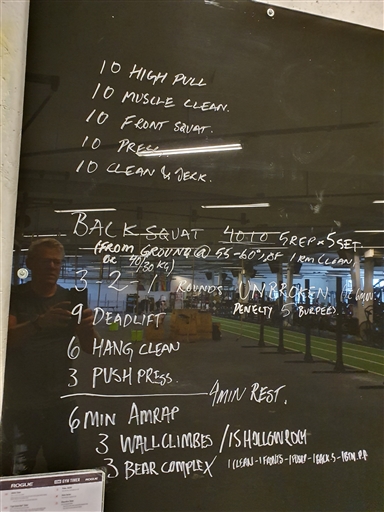 10 HIGH PULL
10 MUSCLE CLEAN.
10 FRONT SQUAT.
10 PRESS
10 CLEAN & JERK.
BACK SQUAT 4010 5REP x 5SET
(FROM GROUND @ 55-60% OF 1RM CLEAN
OR 40/30 KG)
3 - 2 - 1 ROUNDS UNBROKEN
PENELTY 5 BURPEES
9 DEADLIFT
6 HANG CLEAN
3 PUSH PRESS.
4MIN REST.
6MIN AMRAP
3 WALLCLIMBES / 15 HOLLOW ROCK
3 BEAR COMPLEX 1 CLEAN - 1 FRONTS - 1 PUSHP - 1 BACK S -
ROGUE GYM TIMER ROGUE